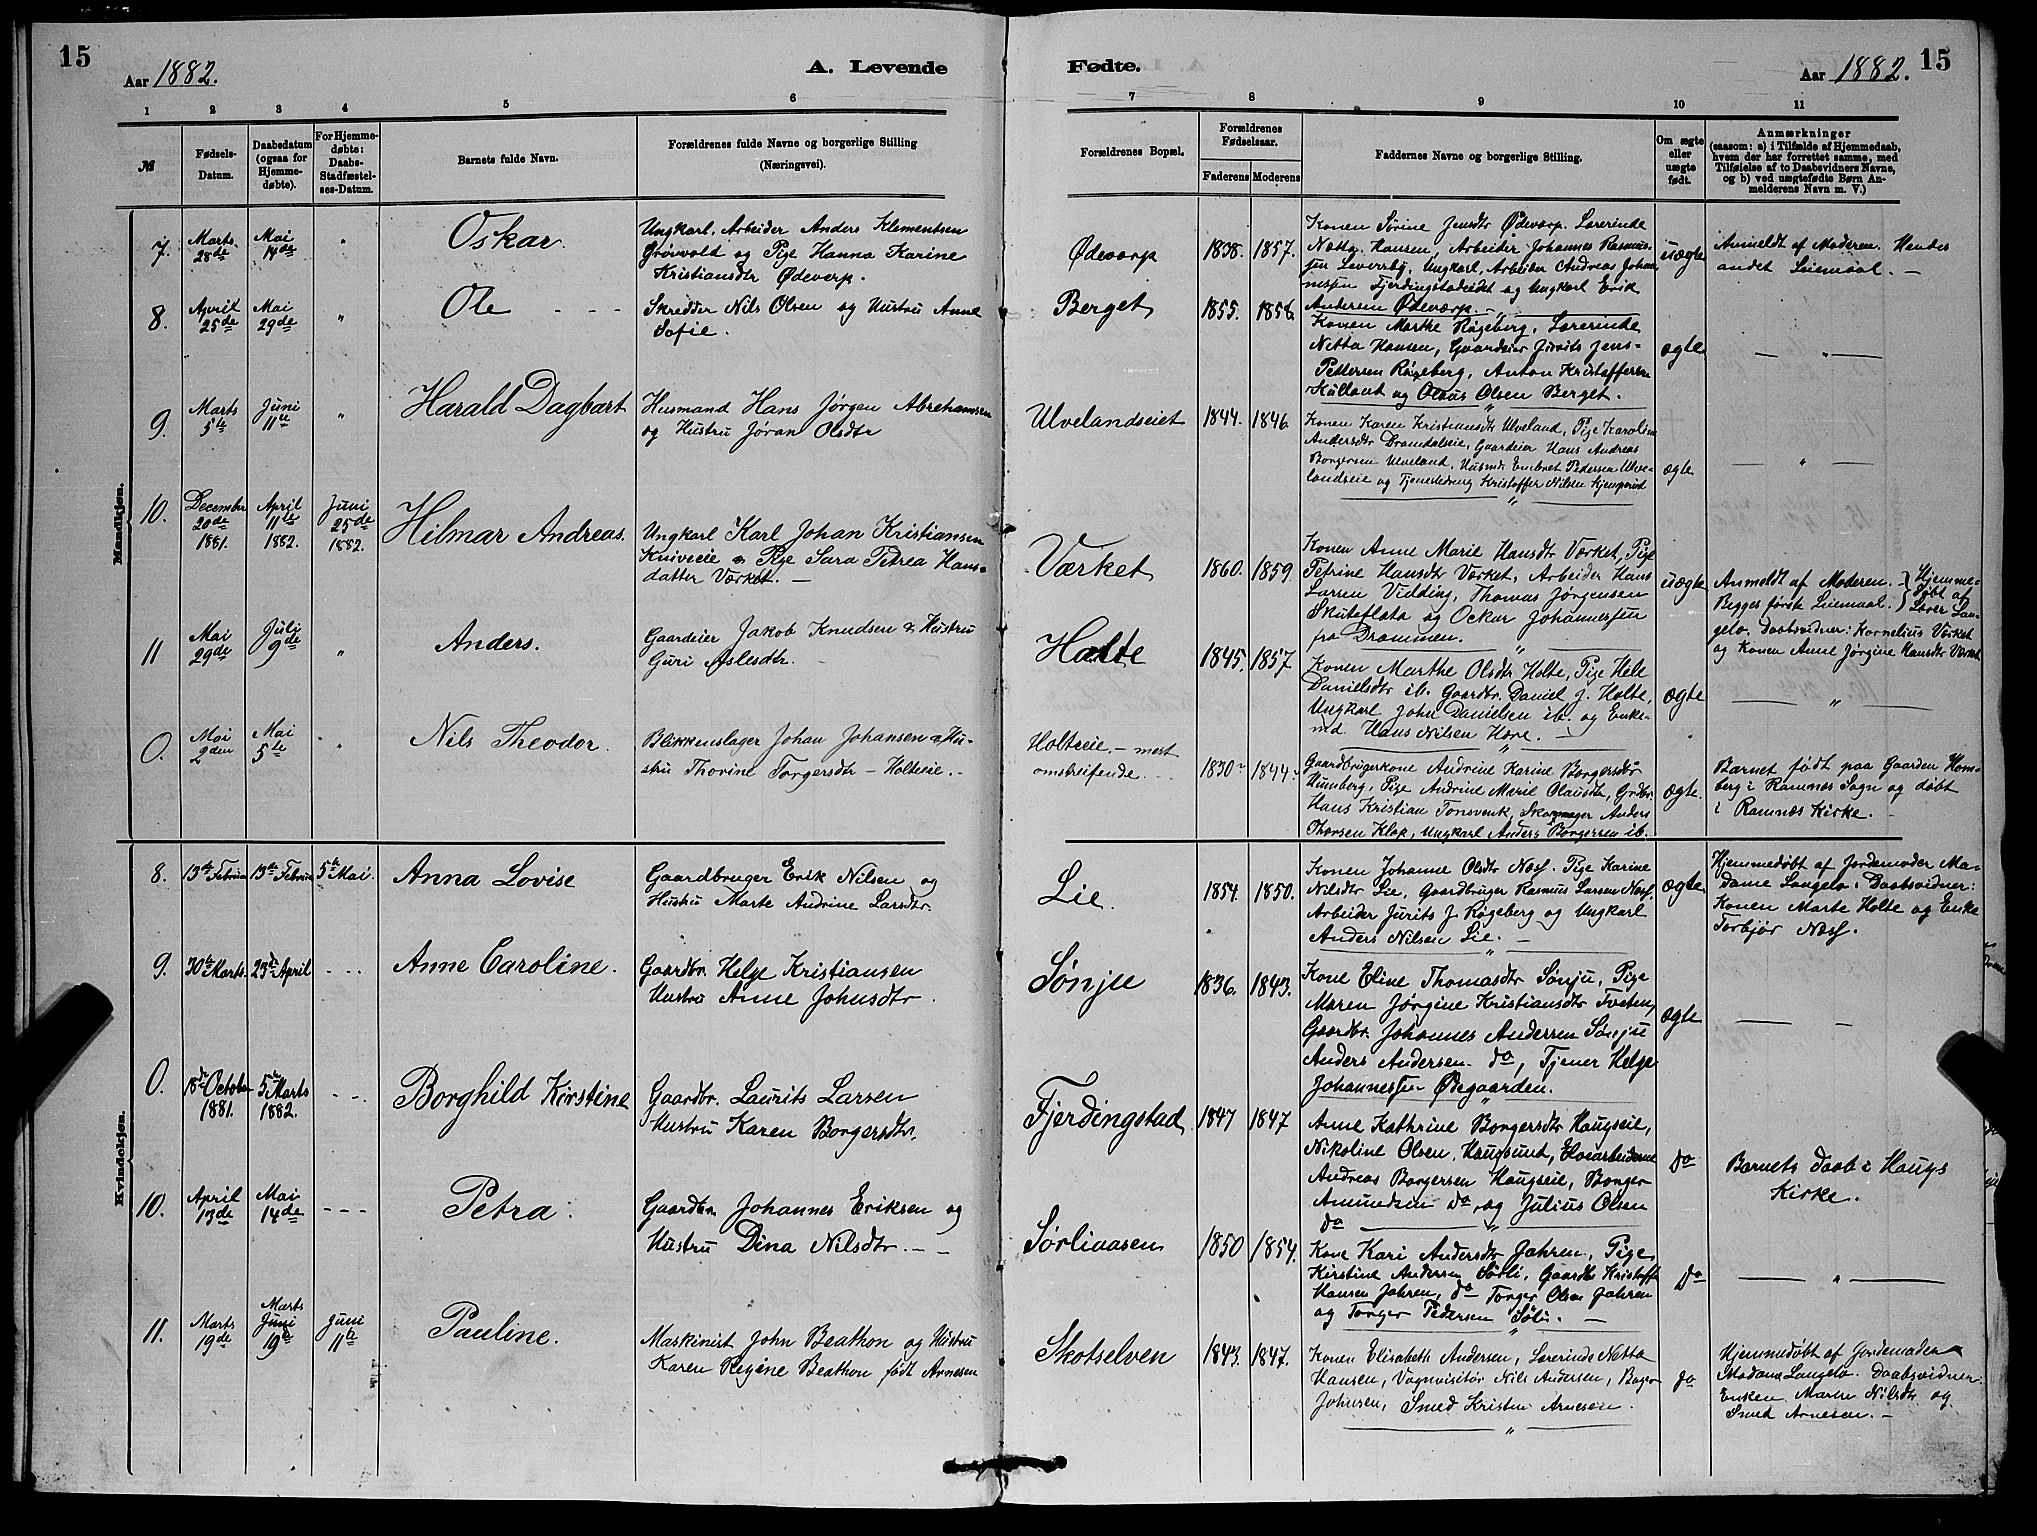 15
Aar 1882.
A. Levende
Fødte.
Aar 1882.
15
1 2 3 4 5 6 7 8 9 10 11
№
Fødsels-
Datum.
Daabsdatum
(ogsaa for
Hjemme-
døbte).
For Hjemme-
døbte:
Daabs-
Stadfæstel-
ses-Datum.
Barnets fulde Navn.
Forældrenes fulde Navne og borgerlige Stilling
(Næringsvei).
Forældrenes Bopæl.
Forældrenes
Fødselsaar.
Faderens Moderens
Faddernes Navne og borgerlige Stilling.
Om ægte
eller
uægte
født.
Anmærkninger
(saasom: a) i Tilfælde af Hjemmedaab,
hvem der har forrettet samme, med
Tilføielse af to Daabsvidners Navne,
og b) ved uægtefødte Børn An-
melderens Navn m. V.)
Mandkjøn.
7.
Marts
28de
Mai
14de
"
Oskar.
Ungkarl, Arbeider Anders Klementsen
Grønvold og Pige Hanna Karine
Kristiansdtr Ødeverp.
Ødevarp
1838. 1857.
Konen Sørine Jensdtr Ødevarp. Lærerinde
Netta Hansen, Arbeider Johannes Rasmus-
sen Leversby, Ungkarl, Arbeider Andreas Johan
nesen Fjerdingstadeidet og Ungkarl Erik
Andersen Ødeværp.
uægte
Anmeldt af Moderen. Hendes
andet Leiemaal. —
8.
April
25de
Mai
29de
"
Ole - - -
Skredder Nils Olsen og Hustru Anne
Sofie.
Berget
1855. 1858.
Konen Marthe Røgeberg, Lærerinde
Netta Hansen, Gaardeier Jurits Jens-
Pettersen Røgeberg, Anton Kristoffersen
Kulland og Olaus Olsen Berget.
ægte.
— " —
9.
Marts
5te
Juni
11te
"
Harald Dagbart
Husmand Hans Jørgen Abrahamsen
og Hustru Jøran Olsdtr
Ulvelandseiet
1844. 1846.
Konen Karen Kristiansdtr Ulveland, Pige Karoline
Andersdtr Dramdaleie, Gaardeier Hans Andreas
Borgersen Ulveland, Husmd. Embret Pedersen Ulve-
landseie og Tjenestedreng Kristoffer Nilsen Kjemperud
ægte.
— " —
10.
December
20de
1881.
April
11te
1882.
Juni
25de
1882.
Hilmar Andreas.
Ungkarl Karl Johan Kristiansen
Kniveeie & Pige Sara Petrea Hans-
datter Værket. —
Værket
1860. 1859.
Konen Anne Marie Hansdtr Værket, Pige
Petrine Hansdtr Værket, Arbeider Hans
Larsen Vidding, Thomas Jørgensen
Skuteflata og Oskar Johannessen
fra Drammen.
uægte
Anmeldt af Moderen. — Hjemme-
Begges første Leiemaal. døbt af
Lærer Lan-
gelo. Daabsvidner: Kornelius Værket
og Konen Anne Jørgine Hansdtr Værket
11
Mai
29de
Juli
9de
"
Anders.
Gaardeier Jakob Knudsen & Hustru
Guri Aslesdtr.
Holte
1845. 1857
Konen Marthe Olsdtr Holte, Pige Hele
Danielsdtr ib. Gaardbr. Daniel J. Holte,
Ungkarl John Danielsen ib. og Enke-
md Hans Nilsen Høre. —
ægte
— " —
0.
Mai
2den
Mai
5te
"
Nils Theodor.
Blikkenslager Johan Johansen & Hu-
stru Thorine Torgersdtr — Holteie. -
Holteie, — mest
omstreifende. - -
1830 1844
Gaardbrugerkone Andrine Karine Borgersdtr
Humberg, Pige Andrine Marie Olausdtr, Grdbr.
Hans Kristian Tonsvenk, Skomager Anders
Thorsen Klop, Ungkarl Anders Borgersen ib.
ægte.
Barnet født paa Gaarden Hom-
berg i Ramnæs Sogn og døbt
i Ramnæs Kirke.
Kvindekjøn.
8.
13de Februar
13de Februar
5te Mai.
Anna Lovise
Gaardbruger Erik Nilsen og
Hustru Marte Andrine Larsdtr.
Lie.
1854. 1850.
Konen Johanne Olsdtr Næss. Pige Karine
Nilsdtr Lie, Gaardbruger Rasmus Larsen Næss.
Arbeider Jurits J. Røgeberg og Ungkarl
Anders Nilsen Lie. —
ægte
Hjemmedøbt af Jordemoder Ma-
dame Langelo. Daabsvidner:
Konen Marte Holte og Enke
Torbjør Næss.
9.
30te Marts.
23de April
- - -
Anne Caroline.
Gaardbr. Helge Kristiansen
Hustru Anne Johnsdtr.
Sønju
1836. 1843.
Kone Eline Thomasdtr Sønju, Pige
Maren Jørgine Kristiansdtr Tveten,
Gaardbr. Johannes Andersen Sønju
Anders Andersen do, Tjener Helge
Johannessen Ødegaarden.
ægte
— —
0.
18de October
1881.
5te Marts
1882.
- - -
Borghild Kirstine
Gaardbr. Laurits Larsen
Hustru Karen Borgersdtr.
Fjerdingstad
1847 1847
Anne Kathrine Borgersdtr Haugseie,
Nikoline Olsen, Haugsund, Høiarbeiderne
Andreas Borgersen Haugseie, Borger
Amundsen do, og Julius Olsen
do
Do
Barnets daab i Haugs
Kirke.
10.
April
13de
Mai
14de
- - -
Petra.
Gaardbr. Johannes Eriksen og
Hustru Dina Nilsdtr. — -
Sørliaasen
1850 1854.
Kone Kari Andersdtr Jahren, Pige
Kirstine Andersen Sørli, Gaardbr Kristoffer
Hansen Jahren, do Torger Olsen Jahren
og Torger Pedersen Sørli. —
Do
— " —
11.
Marts
19de
Marts
Juni
19de
Juni
11te
Pauline.
Maskinist John Beathon og Hustru
Karen Regine Beathon født Arnesen
Skotselven
1843. 1847.
Konen Elisabeth Andersen, Lærerinde Netta
Hansen, Vognvisitør Nils Andersen, Bager
Johnsen, Smed Kristen Arnesen.
Do
Hjemmedøbt af Jordemoder
Madame Langelo. Daabsvidner
Enken Marthe Nilsdtr og
Smed Arnesen. —